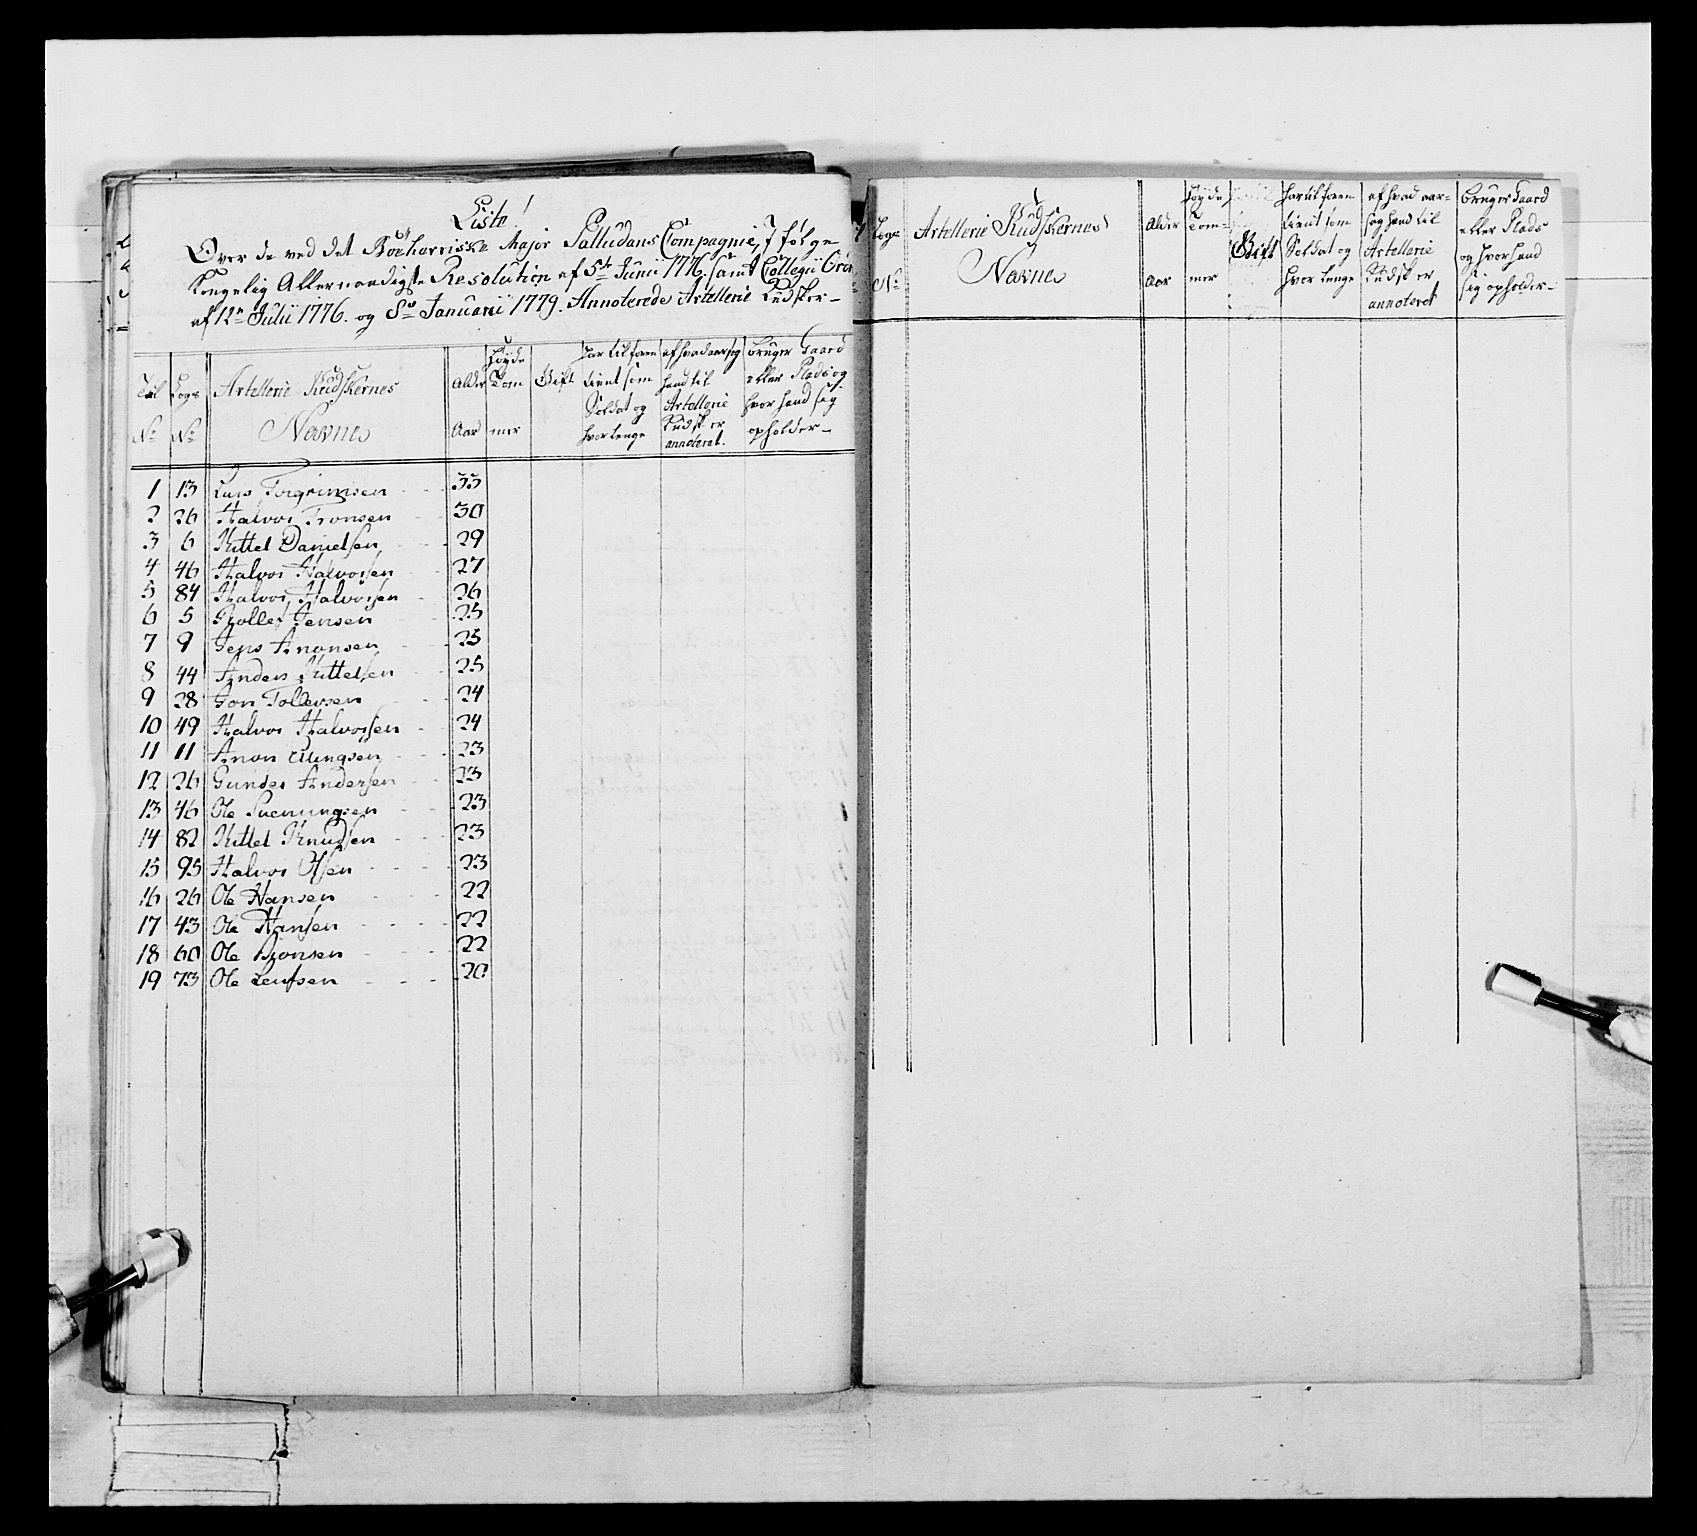 Liste!
Over de ved det Böeherriske Major Palludans Compagnie, I følge
Kongelig Allernaadigste Resolution af 5te Junii 1776. samt Collegii Ordr
af 12te Julii 1776. og 8de Januarii 1779. Annoterede Artellerie Kudsker
Tal No
Logs No
Artellerie Kudskernes Navne
Alder Aar
Høyde Tommer
Gift
har tilforen tient som Soldat og hvor lenge
af hvad aarsag hand til Artellerie Kudsk er annoteret.
bruger Gaard eller Plads og hvor hand sig opholder
1 13 Lars Torgrimsen 33
2 26 Halvor Tronsen 30
3 6 Kittel Danielsen 29
4 46 Halvor Halvorsen 27
5 84 Halvor Halvorsen 26
6 5 Rollef Jensen 25
7 9 Jens Amonsen 25
8 44 Anders Kittelsen 25
9 28 Jon Tollevsen 24
10 49 Halvor Halvorsen 24
11 11 Amon Ellingsen 23
12 26 Gunder Andersen 23
13 46 Ole Svenungsen 23
14 82 Kittel Knudsen 23
15 95 Halvor Olsen 23
16 26 Ole Hansen 22
17 43 Ole Hansen 22
18 60 Ole Bionsen 22
19 73 Ole Leufsen 20
Logs No
Artellerie Kudskernes Navne
Alder Aar
Høyde Tommer
Gift
har tilforen tient som Soldat og hvor lenge
af hvad aarsag hand til Artellerie Kudsk er annoteret
bruger Gaard eller Plads og hvor hand sig opholder